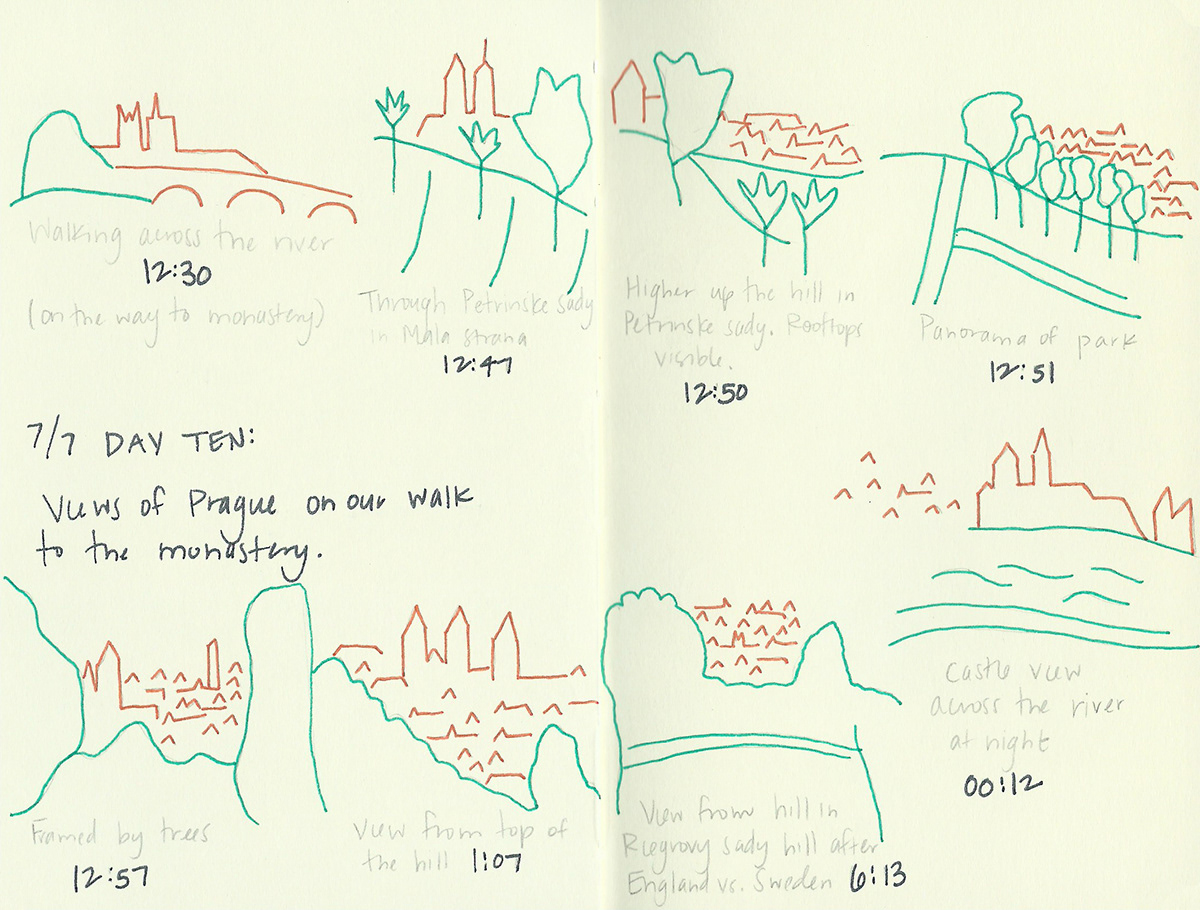 Walking across the river
12:30
(on the way to monastery)
Through Petrinske sady
in Mala strana
12:47
Higher up the hill in
Petrinske sady. Rooftops
visible.
12:50
Panorama of park
12:51
7/7 DAY TEN:
Views of Prague on our walk
to the monastery.
Framed by trees
12:57
View from top of
the hill 1:07
View from hill in
Riegrovy sady hill after
England vs. Sweden 6:13
Castle view
across the river
at night
00:12